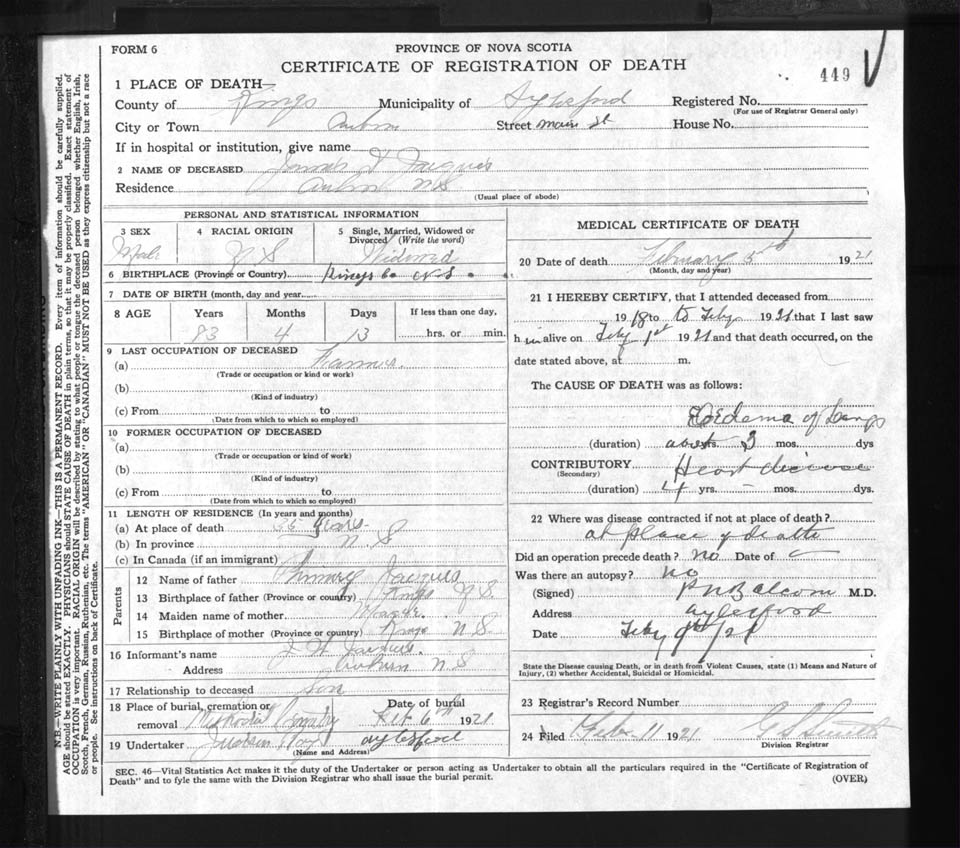 FORM 6
PROVINCE OF NOVA SCOTIA
CERTIFICATE OF REGISTRATION OF DEATH
449
1 PLACE OF DEATH—
County of Kings Municipality of Aylesford Registered No.
(For use of Registrar General only)
City or Town Auburn Street Main St House No.
If in hospital or institution, give name
2 NAME OF DECEASED Jaques
Residence Auburn N S
(Usual place of abode)
PERSONAL AND STATISTICAL INFORMATION
3 SEX
4 RACIAL ORIGIN
5 Single, Married, Widowed or Divorced (Write the word)
Male N S Widowed
6 BIRTHPLACE (Province or Country) Kings Co N.S.
7 DATE OF BIRTH (month, day and year
8 AGE Years Months Days If less than one day,
83 4 13 hrs. or min.
9 LAST OCCUPATION OF DECEASED
(a) Farmer.
(Trade or occupation or kind or work)
(b)
(Kind of industry)
(c) From to
(Date from which to which so employed)
10 FORMER OCCUPATION OF DECEASED
(a)
(Trade or occupation or kind of work)
(b)
(Kind of industry)
(c) From to
(Date from which to which so employed)
11 LENGTH OF RESIDENCE (In years and months)
(a) At place of death years
(b) In province N. S
(c) In Canada (if an immigrant)
Parents
12 Name of father Jaques
13 Birthplace of father (Province or country) Kings N S.
14 Maiden name of mother
15 Birthplace of mother (Province or country) Kings N S.
16 Informant's name Jaques.
Address Auburn N S
17 Relationship to deceased Son
18 Place of burial, cremation or removal Methodist Cemetery Date of burial Feb 6th 1921
19 Undertaker Aylesford
(Name and Address)
MEDICAL CERTIFICATE OF DEATH
20 Date of death February 5th 1921
(Month, day and year)
21 I HEREBY CERTIFY, that I attended deceased from
1918 to 5 Feby 1921 that I last saw
h im alive on Feby 1st 1921 and that death occurred, on the
date stated above, at m.
The CAUSE OF DEATH was as follows:
Oedema of Lungs
(duration) about yrs. 3 mos. dys
CONTRIBUTORY Heart disease
(Secondary)
(duration) 4 yrs. – mos. dys.
22 Where was disease contracted if not at place of death?
at place of death
Did an operation precede death? no Date of
Was there an autopsy? no
(Signed) Balcom M.D.
Address Aylesford
Date Feby 9th/21
State the Disease causing Death, or in death from Violent Causes, state (1) Means and Nature of
Injury, (2) whether Accidental, Suicidal or Homicidal.
23 Registrar's Record Number
24 Filed Feb 11 1921 Smith
Division Registrar
SEC. 46—Vital Statistics Act makes it the duty of the Undertaker or person acting as Undertaker to obtain all the particulars required in the "Certificate of Registration of
Death" and to fyle the same with the Division Registrar who shall issue the burial permit. (OVER)
N.B.—WRITE PLAINLY WITH UNFADING INK—THIS IS A PERMANENT RECORD. Every item of information should be carefully supplied.
AGE should be stated EXACTLY. PHYSICIANS should STATE CAUSE OF DEATH in plain terms, so that it may be properly classified. Exact statement of
OCCUPATION is very important. RACIAL ORIGIN will be described by stating to what people or tongue the deceased person belonged whether English, Irish,
Scotch, French, German, Russian, Ruthenian, etc. The terms "AMERICAN" OR "CANADIAN" MUST NOT BE USED as they express citizenship but not a race
or people. See instructions on back of Certificate.